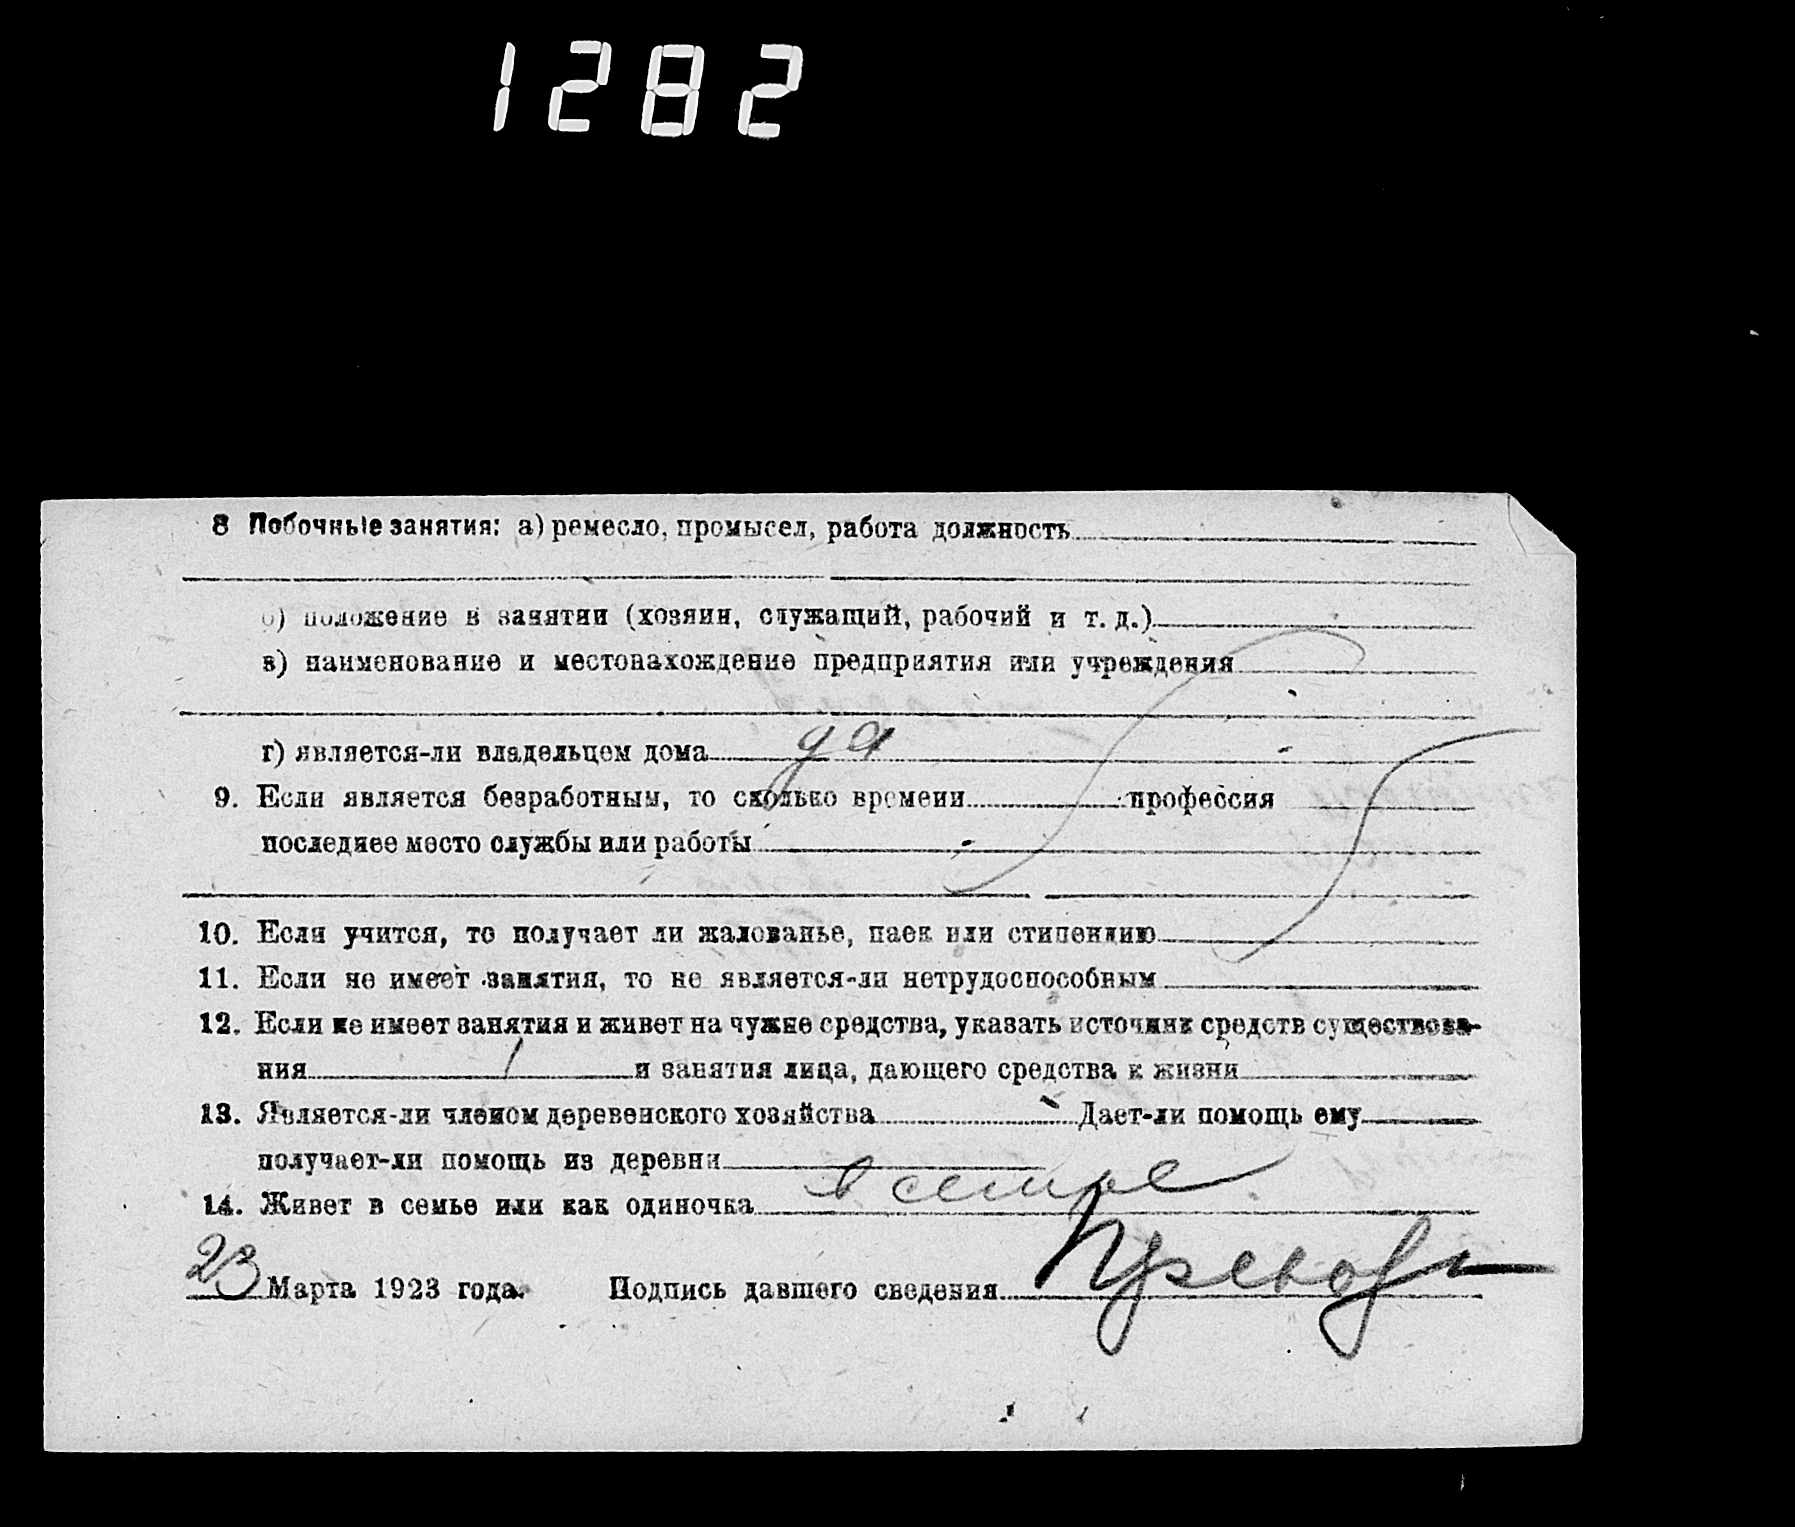 1282
8 Побочные занятия: а) ремесло, промысел, работа должность
б) положение в занятии (хозяин, служащий, рабочий и т. д.)
в) наименование и местонахождение предприятия или учреждения
г) является-ли владельцем дома да
9. Если является безработным, то сколько времени профессия
последнее место службы или работы
10. Если учится, то получает ли жалованье, паек или стипендию
11. Если не имеет занятия, то не является-ли нетрудоспособным
12. Если не имеет занятия и живет на чужие средства, указать источник средств существова-
ния и занятия лица, дающего средства к жизни
13. Является-ли членом деревенского хозяйства Дает-ли помощь ему
получает-ли помощь из деревни
14. Живет в семье или как одиночка в семье
23 Марта 1923 года. Подпись давшего сведения